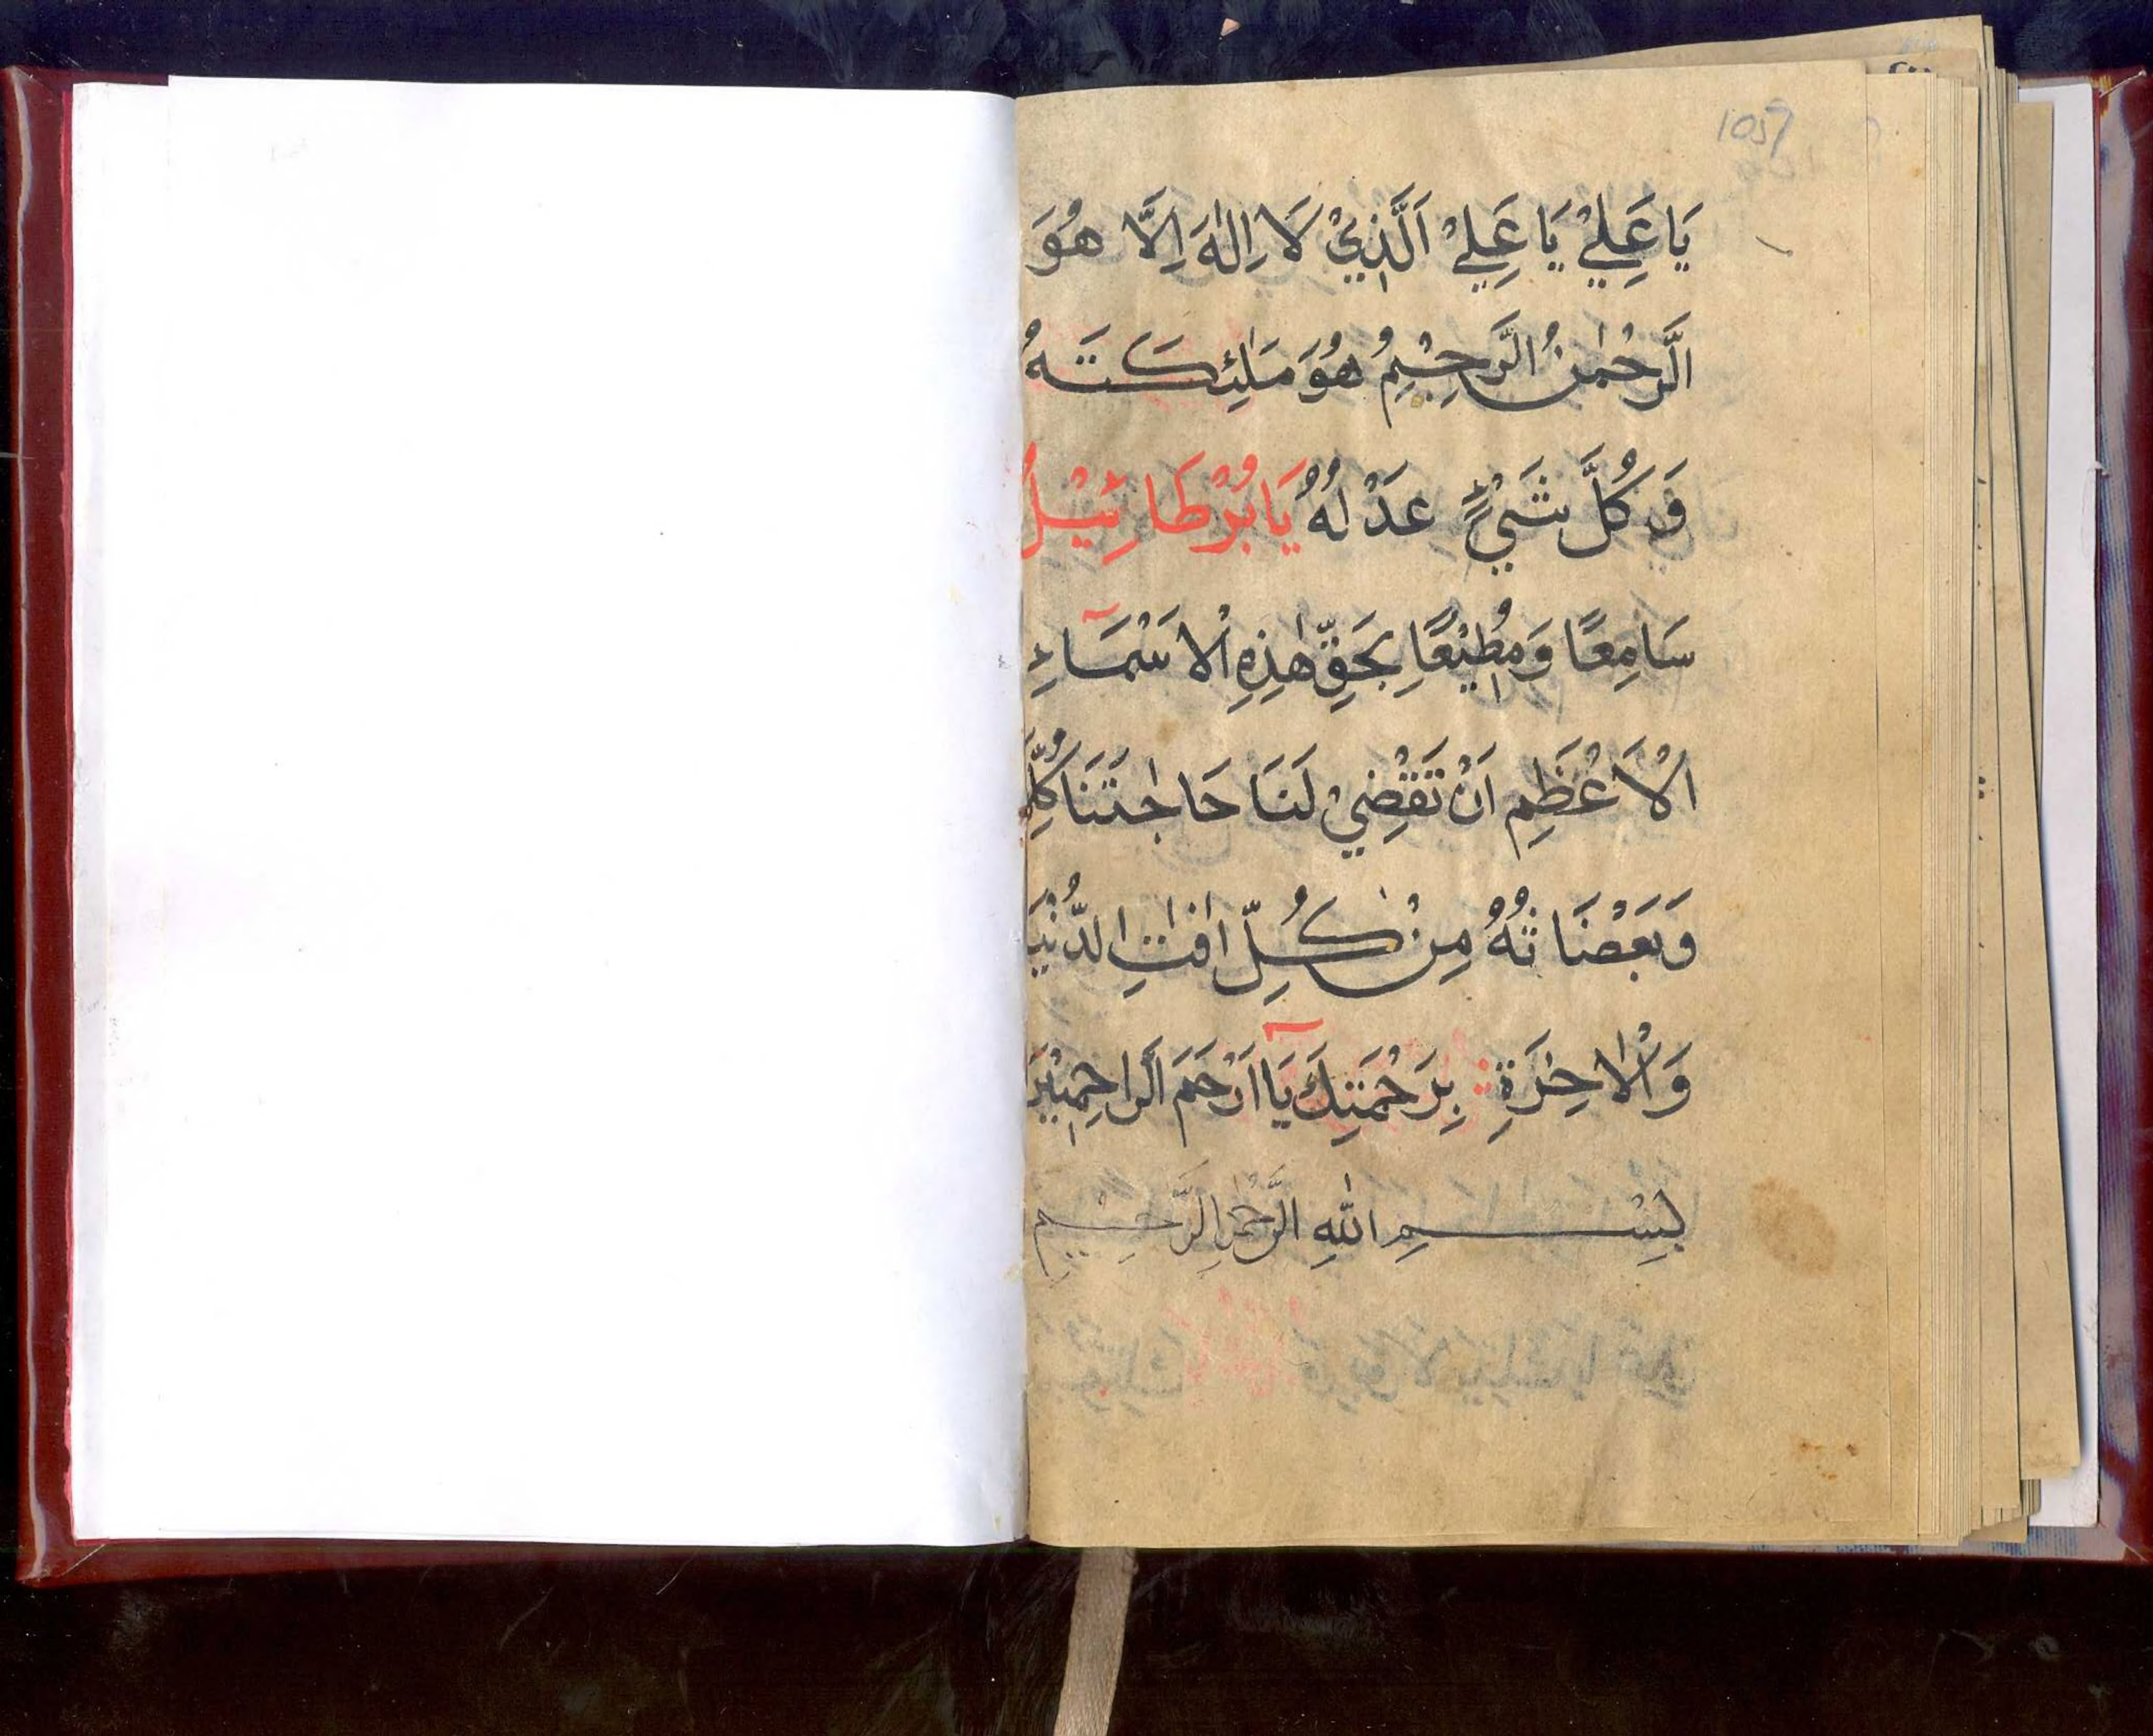 1059
يَا عَلِيْ يَا عَلِيْ اَلَّذِيْ لَا اِلٰهَ اِلَّا هُوَ
الَّرحْمٰنُ الَّرحِيْمُ هُوَ مَلٰئِكَتَهُ
وَكُلَّ شَيْءٍ عَدْلُهُ يَا بُرْطَائِيْلُ
سَامِعًا وَمُطِيْعًا بِحَقِّ هٰذِهِ الْاَسْمَاءِ
الْاَعْظَمِ اَنْ تَقْضِيْ لَنَا حَاجٰتَنَا
وَبَعْضَاتُهُ مِنْ كُلِّ اٰفٰتِ الدُّنْيَا
وَالْاٰخِرَةِ بِرَحْمَتِكَ يَا اَرْحَمَ الَّراحِمِيْنَ
بِسْمِ اللهِ الرَّحْمٰنِ الرَّحِيْمِ